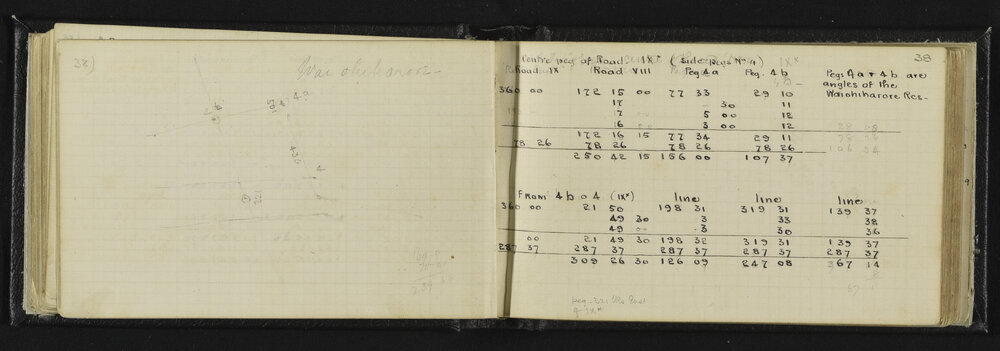 38)
Waiohiharore
4.a
105
4
221
38
Centre peg of Road IX* (Side Pegs No 4) IX*
Road IX Road VIII Peg 4a Peg. 4b
Pegs 4a + 4b are
angles of the
Waiohiharore Res-
360 00 172 15 00 77 33 29 10
17 30 11
17 5 00 12
16 3 00 12
172 16 15 77 34 29 11
78 26 78 26 78 26 78 26
250 42 15 156 00 107 37
From 4b o 4 (IX*) line line line
360 00 21 50 198 31 319 31 139 37
49 30 3 33 38
49 3 30 36
00 21 49 30 198 32 319 31 139 37
287 37 287 37 287 37 287 37 287 37
309 26 30 126 09 247 08 367 14